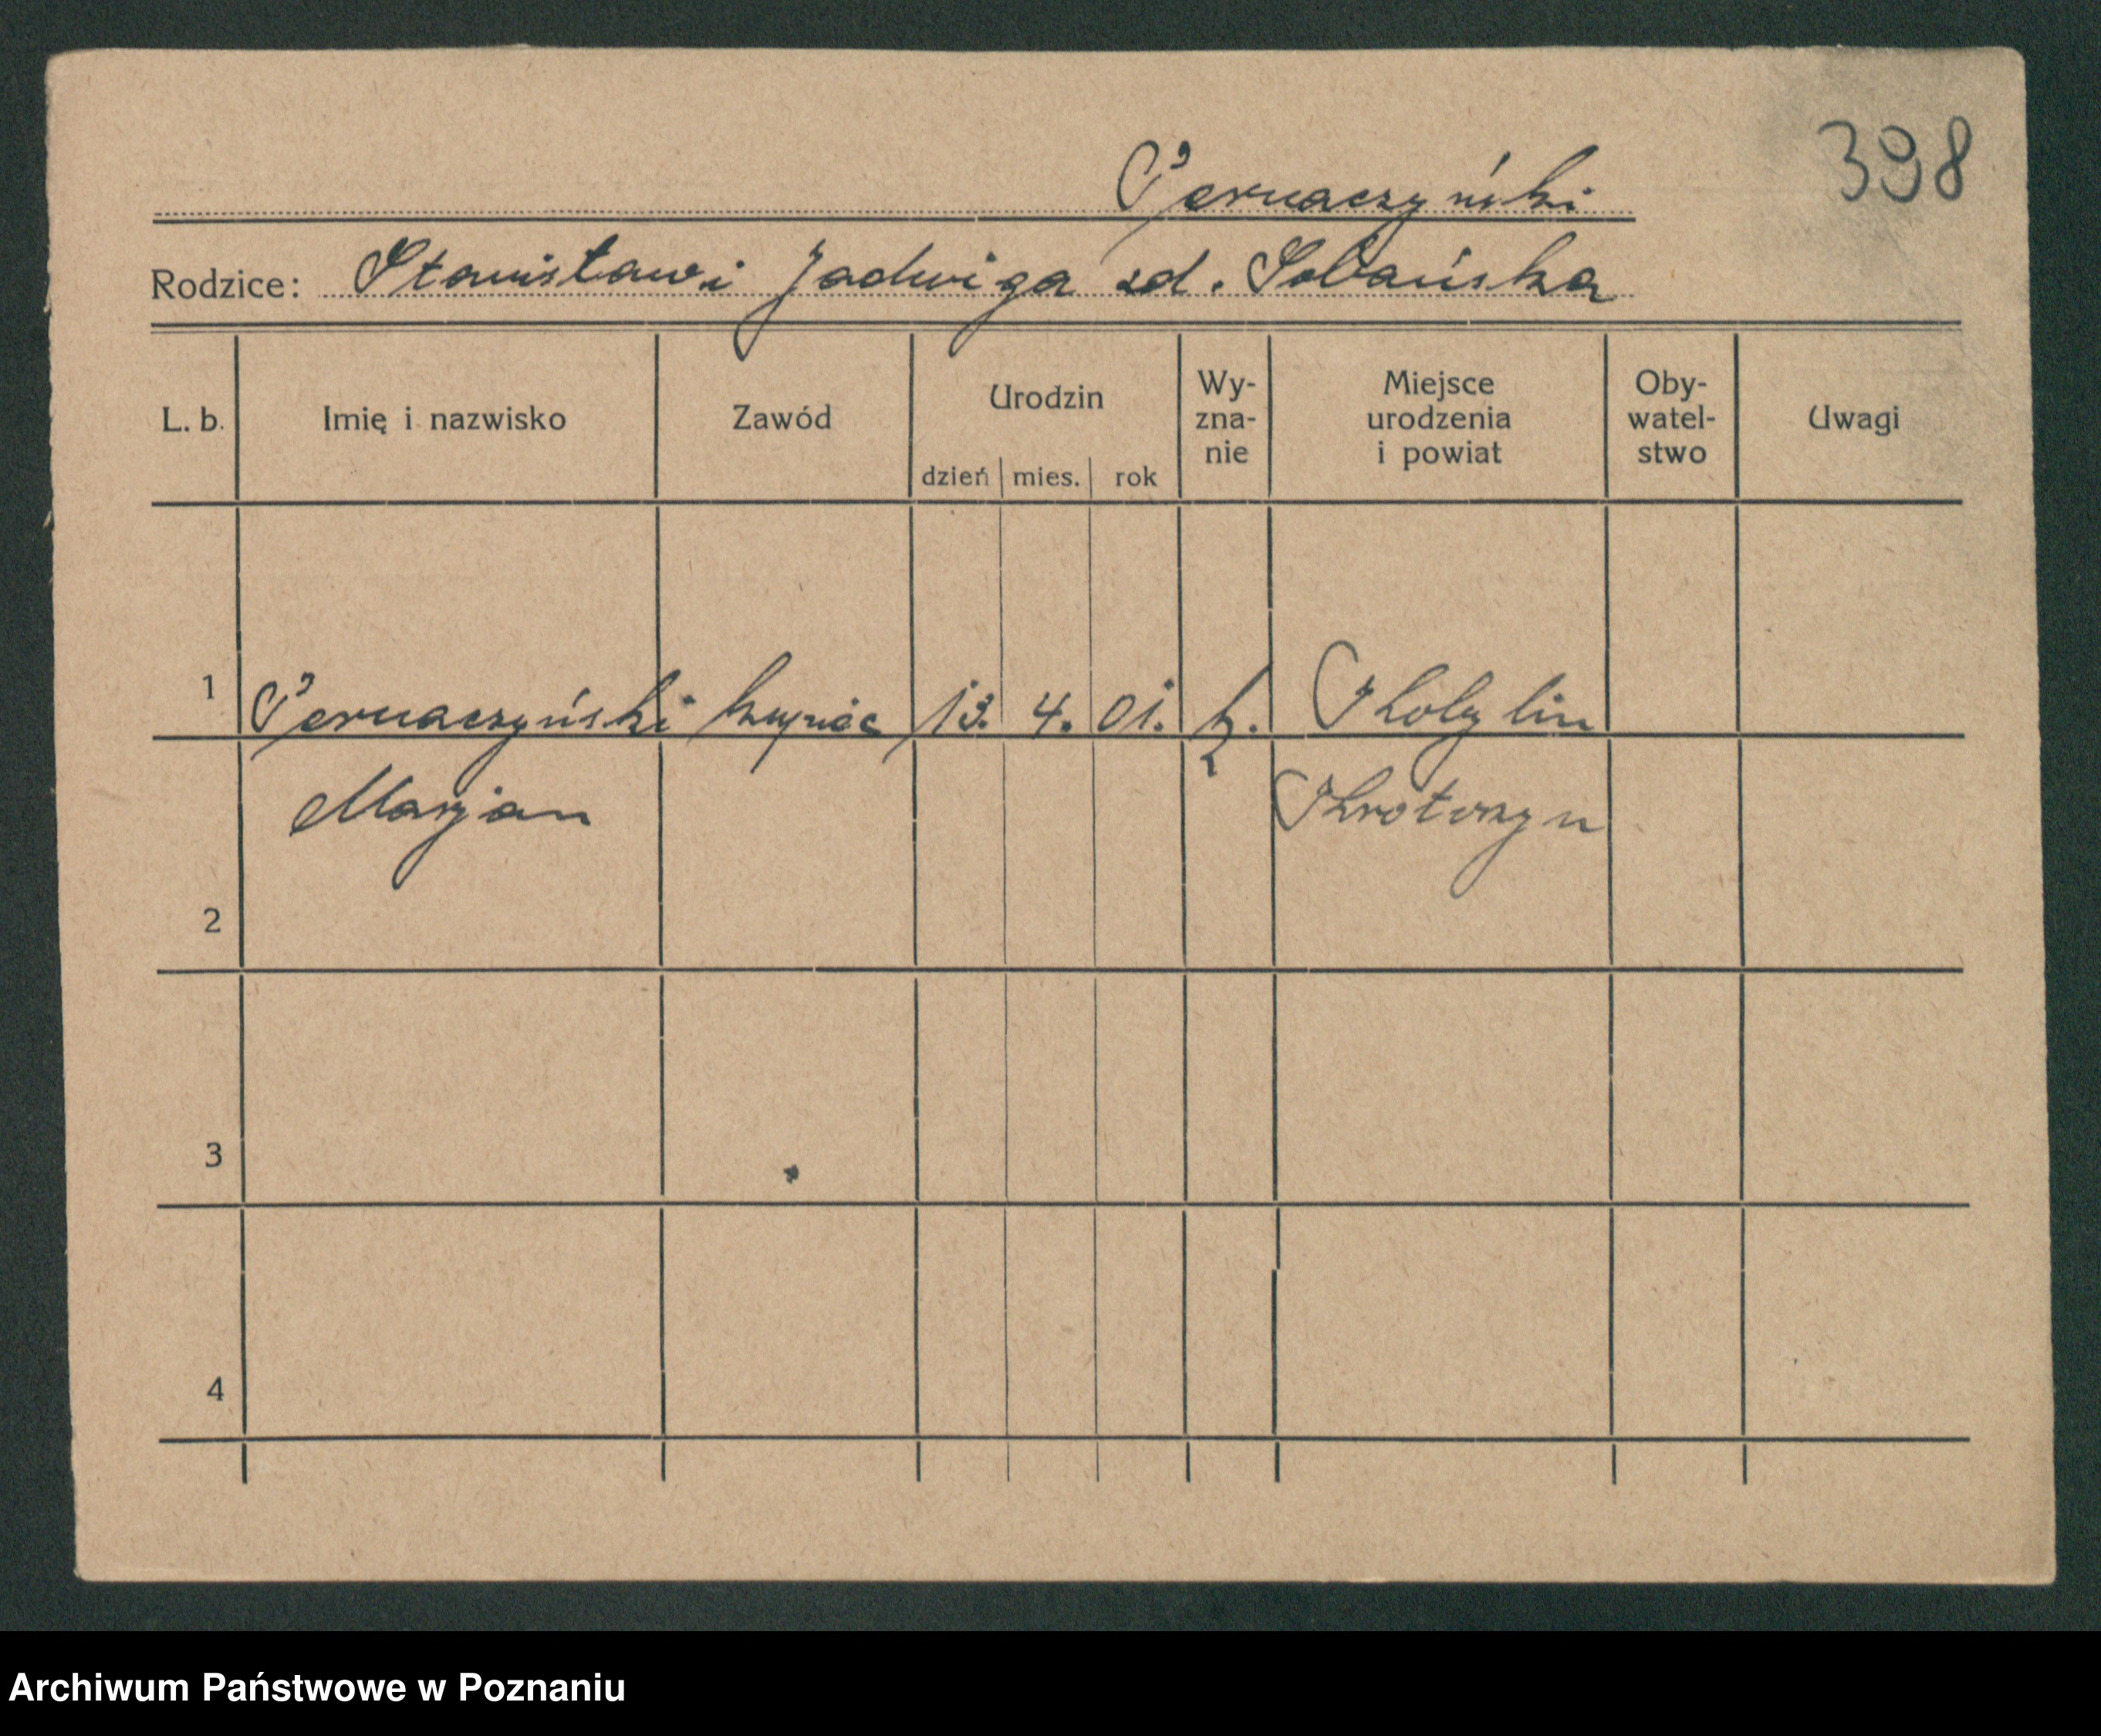 398
Pernaczyński
Rodzice: Stanisław i Jadwiga zd. Sobańska
L. b. Imię i nazwisko Zawód Urodzin dzień mies. rok Wy-zna-nie Miejsce urodzenia i powiat Oby-watel-stwo Uwagi
1 Pernaczyński kupiec 13. 4. 01. k. Kobylin
Marjan Krotoszyn
2
3
4
Archiwum Państwowe w Poznaniu